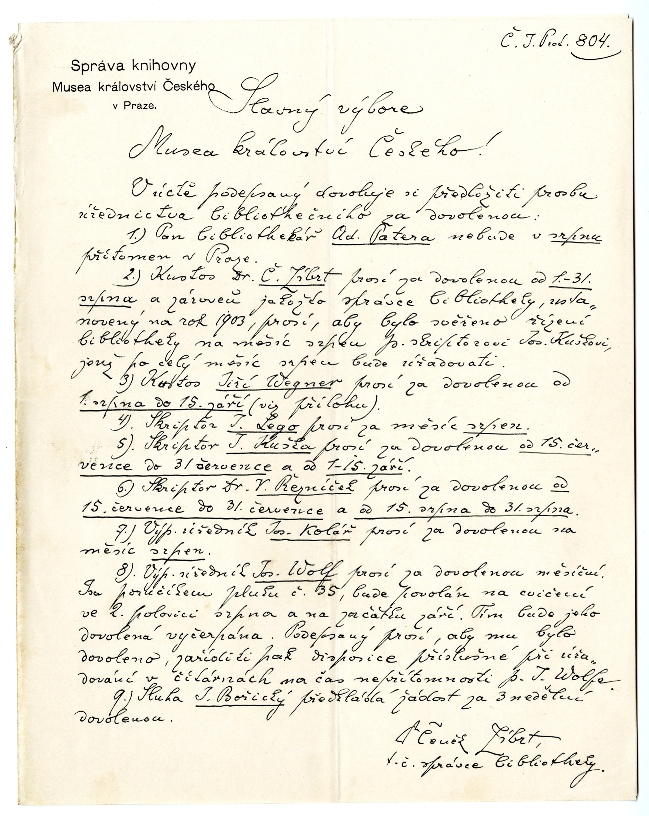 Č. J. Prot. 804.
Správa knihovny
Musea království Českého
v Praze.
Slavný výbore
Musea království Českého!
V úctě podepsaný dovoluje si předložiti prosbu
úřednictva bibliothečního za dovolenou:
1.) Pan bibliothekář Ad. Patera nebude v srpnu
přítomen v Praze.
2.) Kustos Dr. Č. Zíbrt prosí za dovolenou od 1.-31.
srpna a zároveň jakožto správce bibliotheky, usta-
novený na rok 1903, prosí, aby bylo svěřeno řízení
bibliotheky na měsíc srpen p. skriptorovi Jos. Kuškovi,
jenž po celý měsíc srpen bude úřadovati.
3) Kustos Jiří Wegner prosí za dovolenou od
1. srpna do 15. září (viz přílohu).
4). Skriptor J. Lego prosí za měsíc srpen.
5). Skriptor J. Kuška prosí za dovolenou od 15. čer-
vence do 31 července a od 1-15. září.
6) Skriptor Dr. V. Řezníček prosí za dovolenou od
15. července do 31. července a od 15. srpna do 31. srpna.
7) Výp. úředník Jos. Kolář prosí za dovolenou na
měsíc srpen.
8). Výp. úředník Jos. Wolf prosí za dovolenou měsíční.
Jsa poručíkem pluku č. 35, bude povolán na cvičení
ve 2. polovici srpna a na začátku září. Tím bude jeho
dovolená vyčerpána. Podepsaný prosí, aby mu bylo
dovoleno, zaříditi pak disposice příslušné při úřa-
dování v čítárnách na čas nepřítomnosti p. J. Wolfa.
9.) Sluha J. Bořický předkládá žádost za 3 nedělní
dovolenou.
Čeněk Zíbrt,
t. č. správce bibliotheky.